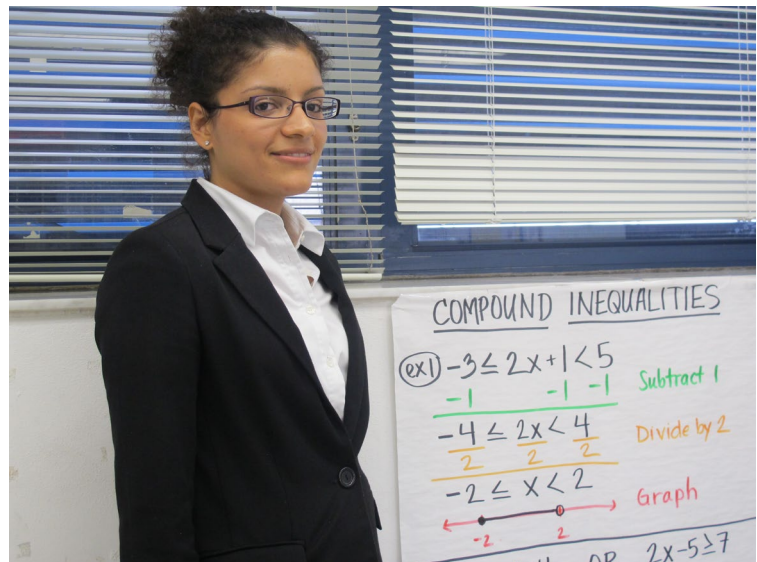 COMPOUND INEQUALITIES
ex1 -3 ≤ 2x+1 < 5
-1 -1 -1 Subtract 1
-4 ≤ 2x < 4 Divide by 2
2 2 2
-2 ≤ x < 2 Graph
-2 2
OR 2x-5≥7